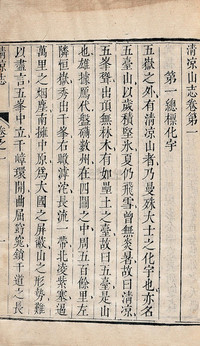 清涼山志卷第一
第一總標化宇
五嶽之外有清涼山者乃曼殊大士之化宇也亦名
五臺山以歲積堅冰夏仍飛雪曾無炎暑故曰清涼
五峯聳出頂無林木有如壘土之臺故曰五臺是山
也雄據鴈代盤礴數州在四關之中周五百餘里左
隣恒嶽秀出千峯右瞰滹沱長流一帶北凌紫塞遏
萬里之烟塵南擁中原為大國之屏蔽山之形勢難
以盡言五峯中立千嶂環開曲屈窈窕鎖千道之長
清涼志 卷之一